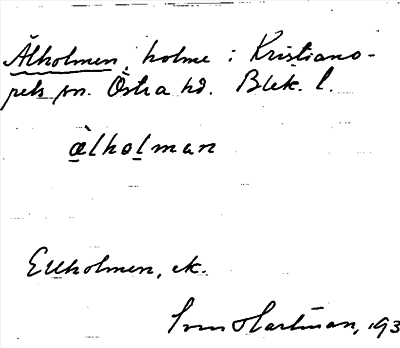 Älholmen, holme i Kristiano-
pels sn. Östra hd. Blek. l.
àlholman
Ellholmen, ek.
Sven Hartman, 193